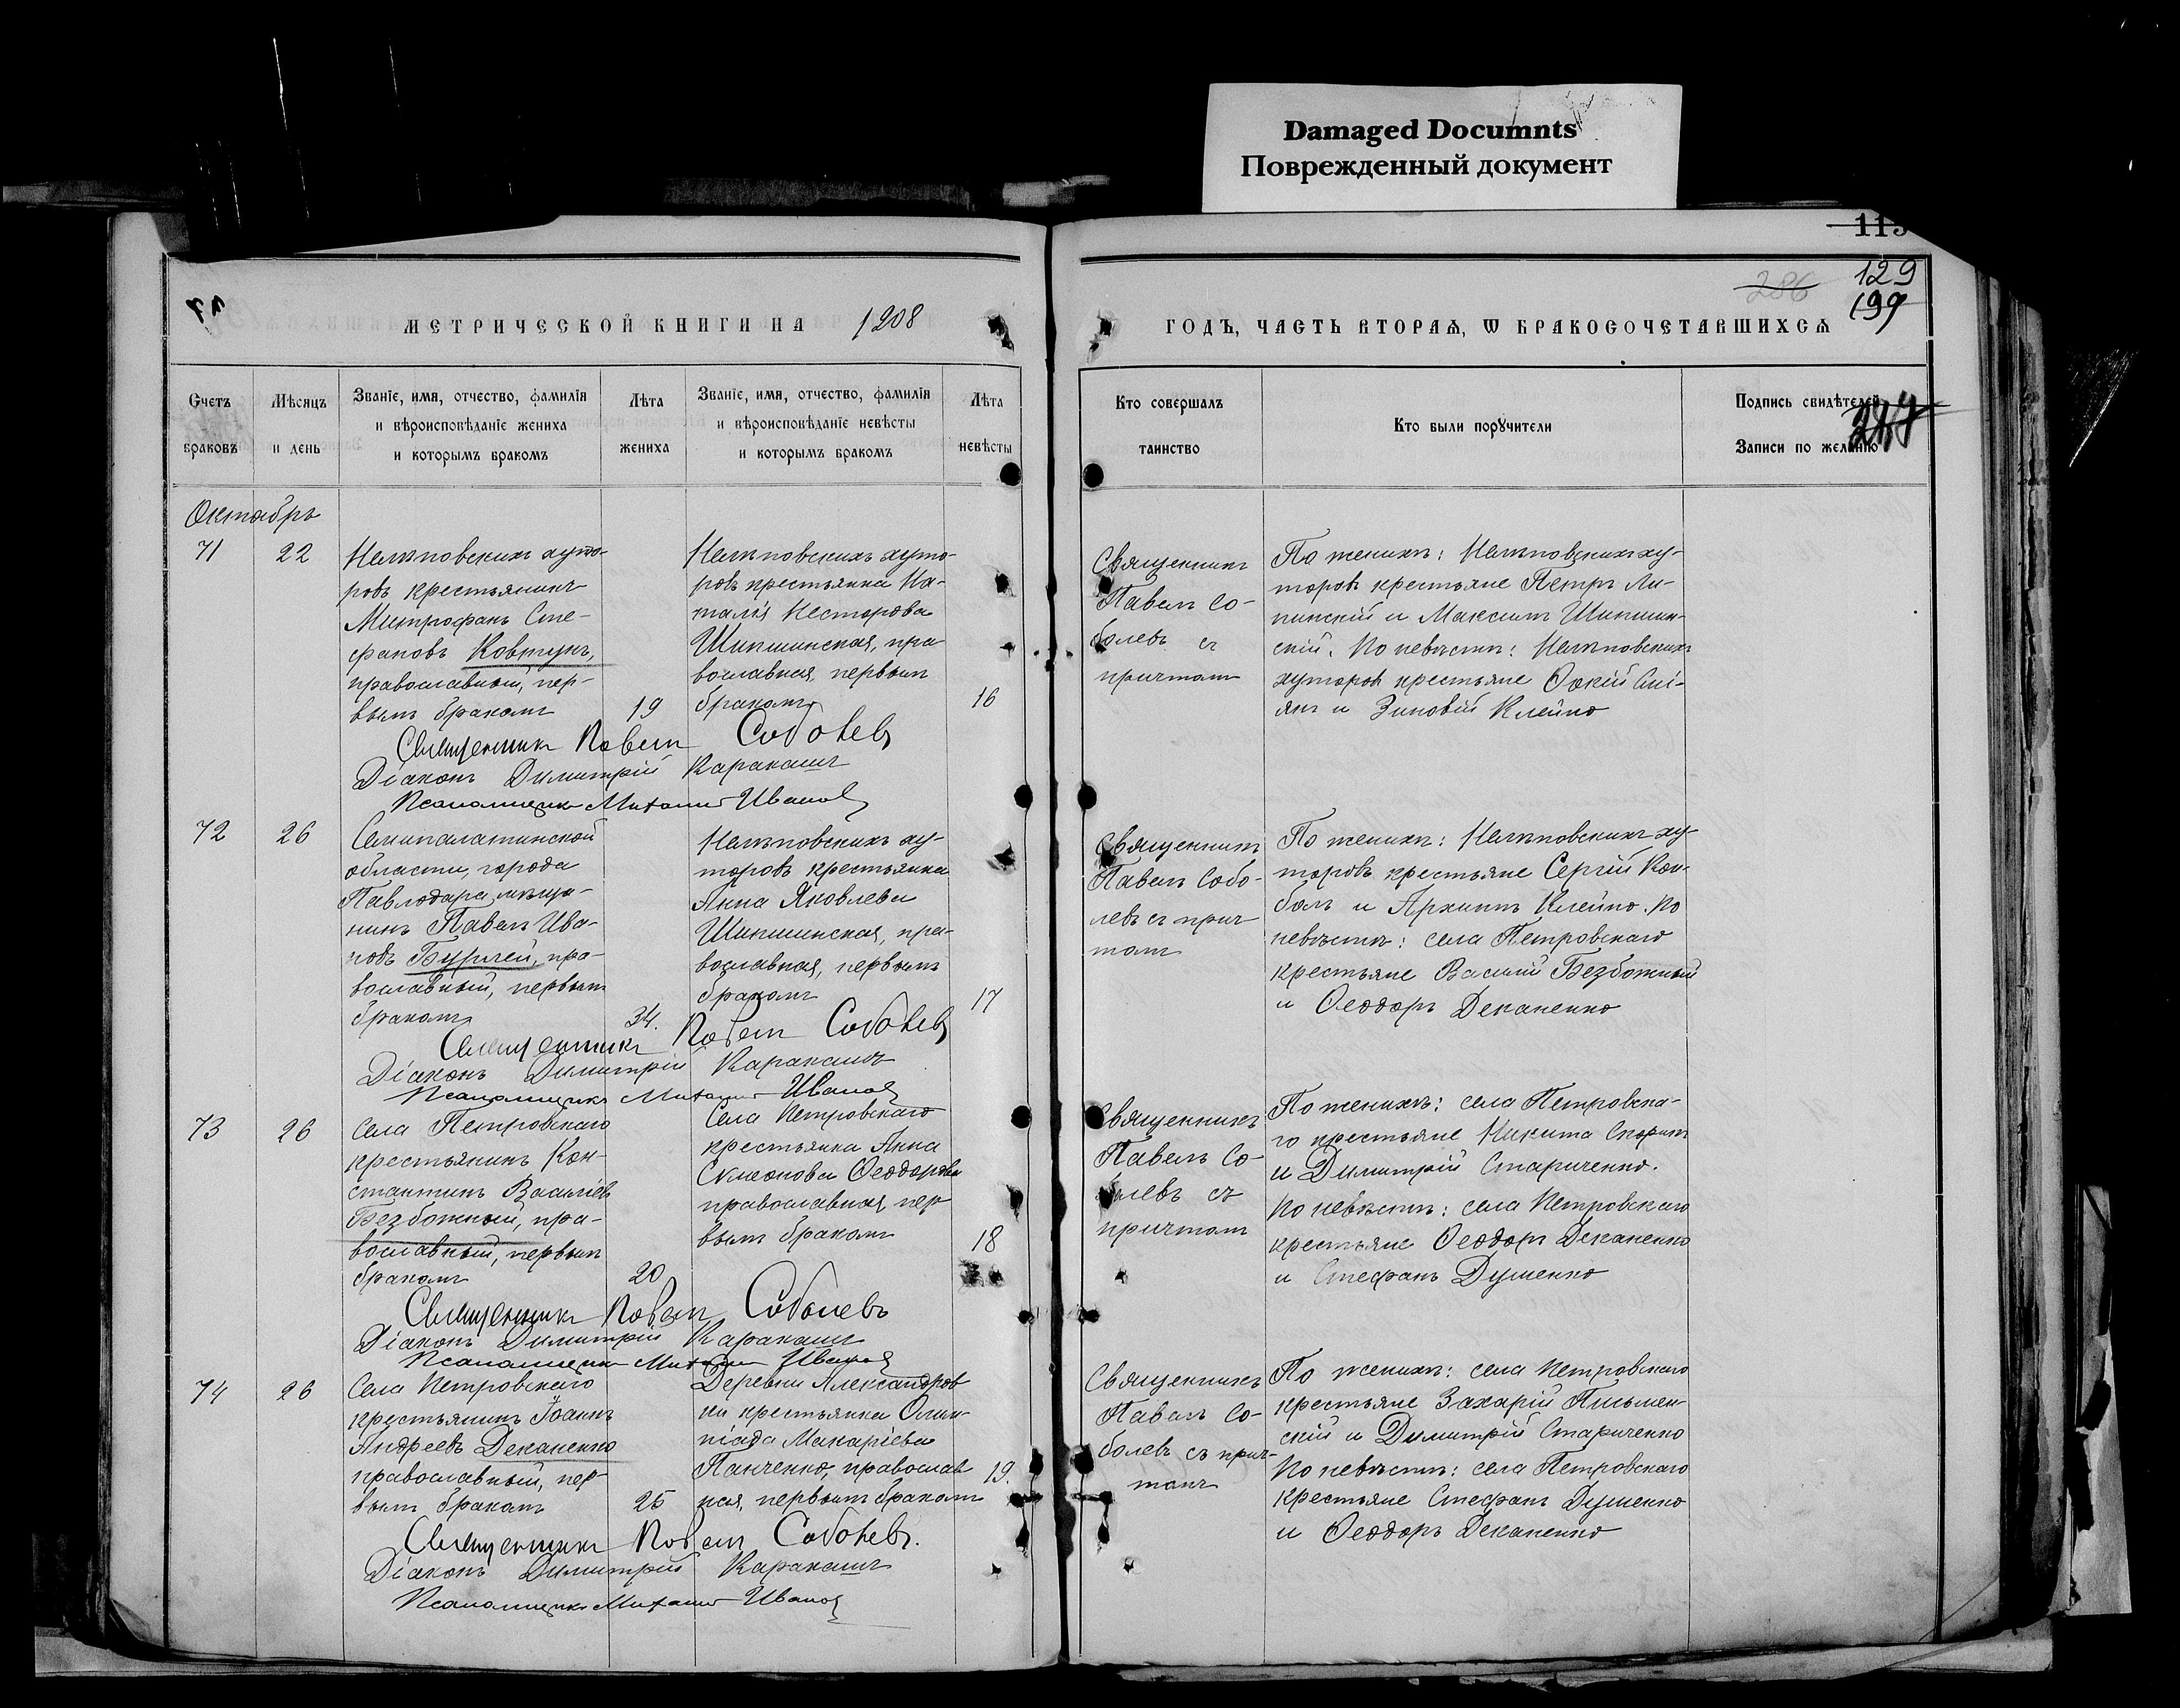 Damaged Documnts
Поврежденный документ
129
199
286
МЕТРИЧЕСКОЙ КНИГИ НА 1908
ГОДЪ, ЧАСТЬ ВТОРАѦ, Ѡ БРАКОСОЧЕТАВШИХСѦ
Счетъ
браковъ
Мѣсяцъ
и день
Званіе, имя, отчество, фамилія
и вѣроисповѣданіе жениха
и которымъ бракомъ
Лѣта
жениха
Званіе, имя, отчество, фамилія
и вѣроисповѣданіе невѣсты
и которымъ бракомъ
Лѣта
невѣсты
Кто совершалъ
таинство
Кто были порꙋчители
Подпись свидѣтелей
Записи по желанію
Октябрь
71
22
хуто-
ровъ крестьянинъ
Митрофанъ Сте-
фановъ Ковтунъ,
православный, пер-
вымъ бракомъ
19
хуто-
ровъ крестьянка На-
талія Несторова
Шипшинская, пра
вославная, первымъ
бракомъ
16
Священникъ
Павелъ Со-
болевъ съ
причтомъ
По женихѣ: ху-
торовъ крестьяне Петръ Ли-
пинскій и Максимъ Шипшин-
скій. По невѣстѣ:
хуторовъ крестьяне
и Зиновій Клейно
Священникъ Павелъ Соболевъ
Діаконъ Димитрій Каракашъ
Псаломщикъ Михаилъ Ивановъ
72
26
Семипалатинской
области, города
Павлодара мѣща-
нинъ Павелъ Ива-
новъ Бурлей, пра-
вославный, первымъ
бракомъ
34.
ху-
торовъ крестьянка
Анна Яковлева
Шипшинская, пра-
вославная, первымъ
бракомъ
17
Священникъ
Павелъ Собо-
левъ съ прич
томъ
По женихѣ: ху-
торовъ крестьяне Сергій Кон-
боль и Архипъ Клейно. По
невѣстѣ: села Петровскаго
крестьяне Василій Безбожный
и Ѳеодоръ Деканенко
Священникъ Павелъ Соболевъ
Діаконъ Димитрій Каракашъ
Псаломщикъ Михаилъ Ивановъ
73
26
Села Петровскаго
крестьянинъ Кон-
стантинъ Василіевъ
Безбожный, пра-
вославный, первымъ
бракомъ
20
Села Петровскаго
крестьянка Анна
Симеонова Ѳеодорова
православная, пер
вымъ бракомъ
18
Священникъ
Павелъ Со-
болевъ съ
причтомъ
По женихѣ: села Петровска-
го крестьяне Никита Скорикъ
и Димитрій Стариченко.
По невѣстѣ: села Петровскаго
крестьяне Ѳеодоръ Деканенко
и Стефанъ Душенко
Священникъ Павелъ Соболевъ
Діаконъ Димитрій Каракашъ
Псаломщикъ Михаилъ Ивановъ
74
26
Села Петровскаго
крестьянинъ Іоаннъ
Андреевъ Деканенко
православный, пер-
вымъ бракомъ
25
Деревни Александров
ки крестьянка Олим-
піада Макаріева
Панченко, православ
ная, первымъ бракомъ
19.
Священникъ
Павелъ Со-
болевъ съ прич-
томъ
По женихѣ: села Петровскаго
крестьяне Захарій Письмен-
скій и Димитрій Стариченко
По невѣстѣ: села Петровскаго
крестьяне Стефанъ Душенко
и Ѳеодоръ Деканенко
Священникъ Павелъ Соболевъ.
Діаконъ Димитрій Каракашъ
Псаломщикъ Михаилъ Ивановъ